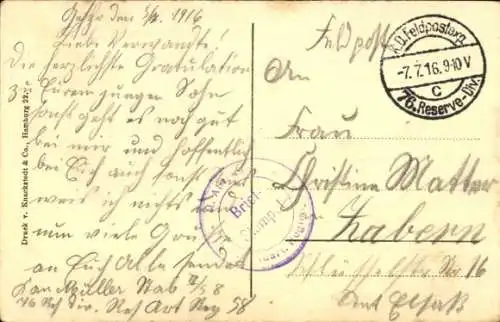 den 5/7. 1916
Liebe Verwandte!
Die herzlichste Gratulation
z Eurem jungen Sohn
sonst geht es noch gut
bei mir und hoffentlich
bei Euch auch sonst
weis ich nichts
nun viele Grüße
an Euch Alle sendet
Müller Stab II/58
76 Res Div. Res Art Reg 58
Druck v. Knackstedt & Co., Hamburg 22.
Feldpost
K.D. Feldpostexp.
-7.7.16. 9-10V
c
76. Reserve-Div.
An
Frau
Christine Matter
Zabern
No 16
Elsaß
Brief-
Stempel